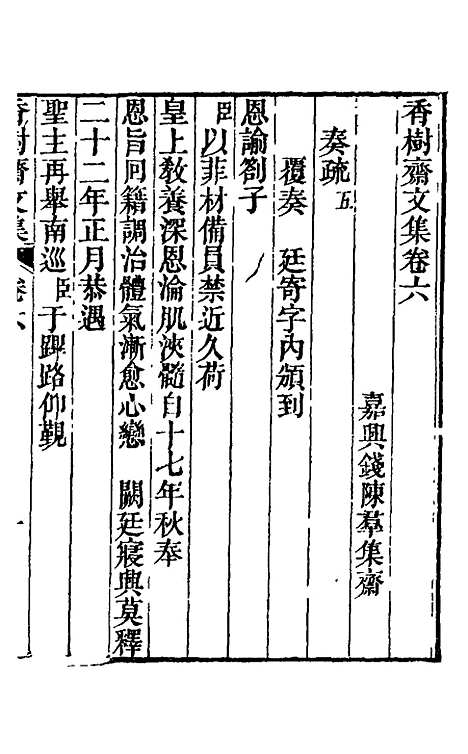 香樹齋文集卷六
嘉興錢陳羣集齋
奏疏五
覆奏　廷寄字內頒到
恩諭劄子
臣以菲材備員禁近久荷
皇上敎養深恩淪肌浹髓自十七年秋奉
恩旨回籍調治體氣漸愈心戀　闕廷寢興莫釋
二十二年正月恭遇
聖主再舉南巡臣于蹕路仰覲
香樹齋文集　卷六　一